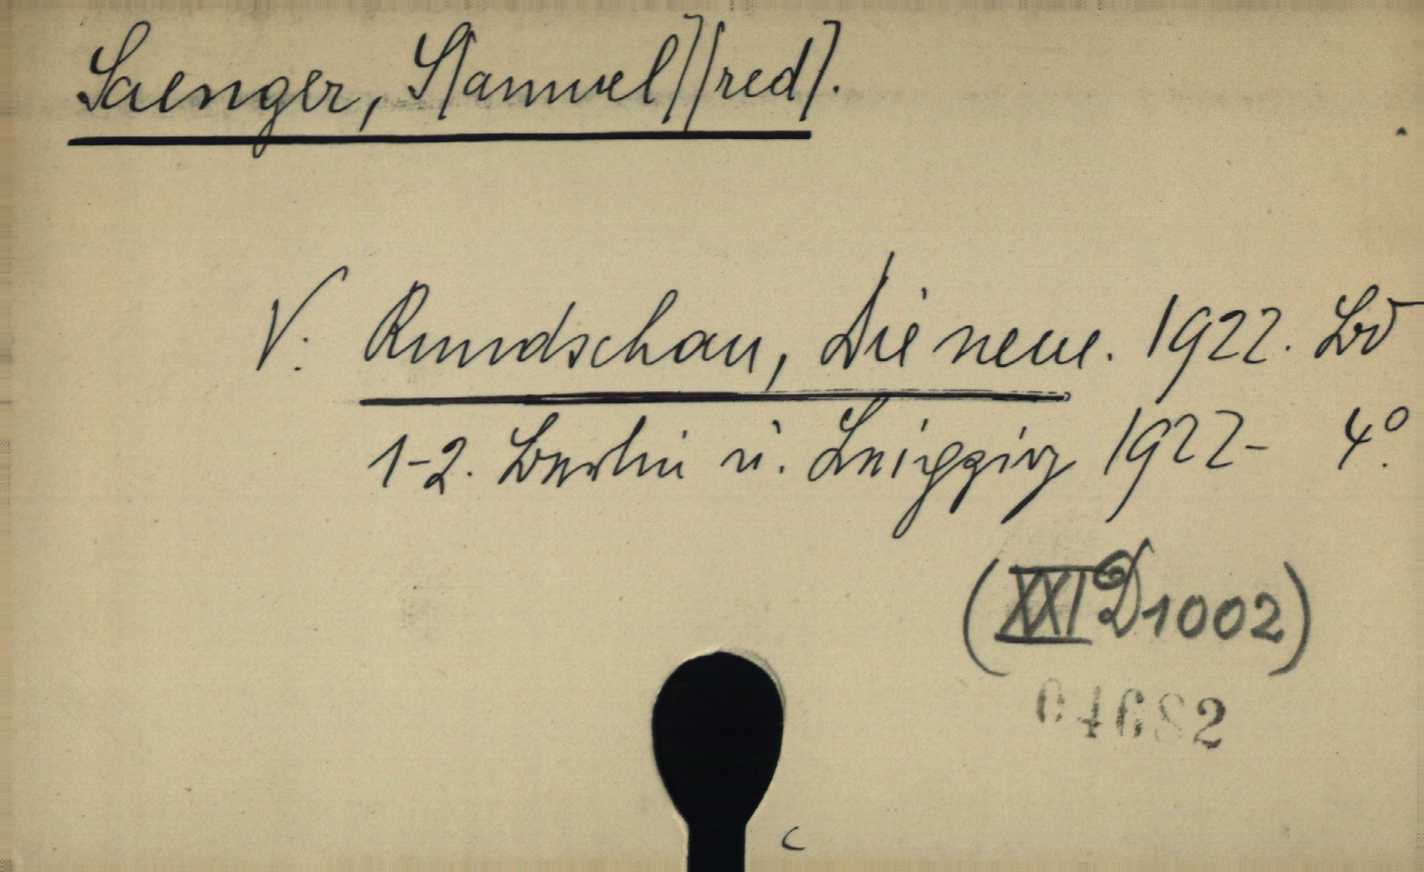 Saenger, S[amuel] [red].
V: Rundschau, Die neue. 1922. Bd
1-2. Berlin u. Leipzig 1922- 4°.
(XXI D 1002)
04682